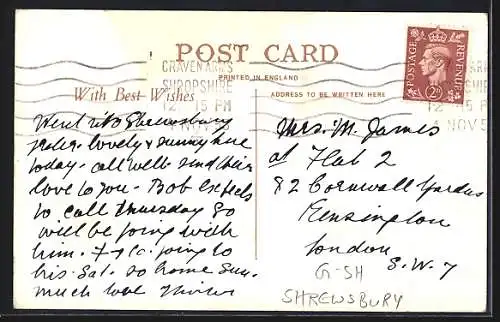 POST CARD
PRINTED IN ENGLAND
With Best Wishes
ADDRESS TO BE WRITTEN HERE
CRAVEN ARMS
SHROPSHIRE
12 15 PM
4 NOV
POSTAGE
REVENUE
2D
Went into Shrewsbury
lovely & sunny here
today. all well & send their
love to you. Bob expects
to call Thursday so
will be going with
him. going to
his. Sat. so home Sun.
much love
Mrs. M. James
at Flat 2
82 Cornwall Gardens
Kensington
London
S.W.7
G-SH
SHREWSBURY